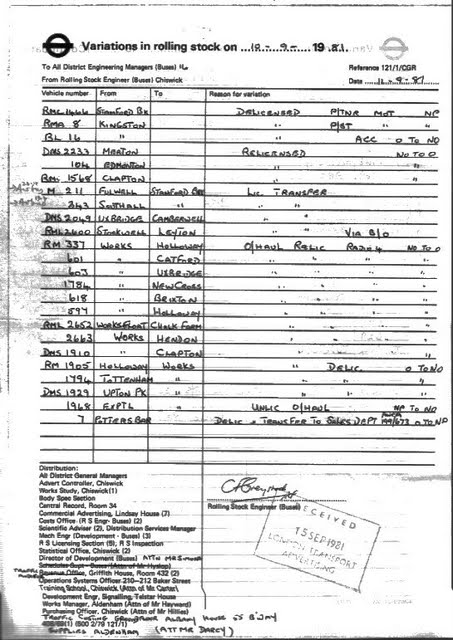 Variations in rolling stock on 10-9- 1981.
To All District Engineering Managers (Buses)
Reference 121/1/CGR
From Rolling Stock Engineer (Buses) Chiswick
Date 11-9-81
Vehicle number From To Reason for variation
RML 1466 STAMFORD BK DELICENSED P/TNR MOT NP
RMA 8 KINGSTON " P/BT " "
BL 16 " " ACC O TO NO
DMS 2233 MERTON RELICENSED NO TO O
104 EDMONTON " "
RMS 1568 CLAPTON " "
M 211 FULWELL STAMFORD BK LIC TRANSFER
343 SOUTHALL " "
DMS 2049 UXBRIDGE CAMBERWELL "
RML 2600 STOCKWELL LEYTON " VIA B/O
RM 337 WORKS HOLLOWAY O/HAUL RELIC NO TO O
601 " CATFORD " " "
603 " UXBRIDGE " " "
1784 " NEW CROSS " " "
618 " BRIXTON " " "
597 " HOLLOWAY " " "
RML 2652 WORKS FLOAT CHALK FARM " " "
2663 WORKS HENDON " " "
DMS 1910 " CLAPTON " " "
RM 1905 HOLLOWAY WORKS " DELIC O TO NO
1794 TOTTENHAM " " " "
DMS 1929 UPTON PK " " " "
1968 EXPTL " UNLIC O/HAUL NP TO NO
7 POTTERS BAR DELIC & TRANSFER TO SALES DEPT O TO NP
Distribution:
All District General Managers
Advert Controller, Chiswick
Works Study, Chiswick (1)
Body Spec Section
Central Record, Room 34
Commercial Advertising, Lindsay House (7)
Costs Office (R S Engr- Buses) (2)
Scientific Adviser (2), Distribution Services Manager
Mech Engr (Development - Buses) (3)
R S Licensing Section (5), R S Inspection
Statistical Office, Chiswick (2)
Director of Development (Buses) ATTN
Schedules Supt - Buses (Attn of Mr Hyslop)
TRAFFIC Revenue Office, Griffith House, Room 432 (2)
Operations Systems Officer 210-212 Baker Street
Training School, Chiswick (Attn of Mr Carter)
Development Engr, Signalling, Telstar House
Works Manager, Aldenham (Attn of Mr Hayward)
Purchasing Officer, Chiswick (Attn of Mr Hillies)
TRAFFIC COSTING GROUND FLOOR ALBANY HOUSE 55 B'WAY
SUPPLIES ALDENHAM (ATT MR DARCY)
Rolling Stock Engineer (Buses)
RECEIVED
15 SEP 1981
LONDON TRANSPORT
ADVERTISING